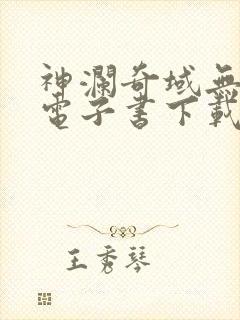 神瀾奇域無
電子書下載
王秀琴